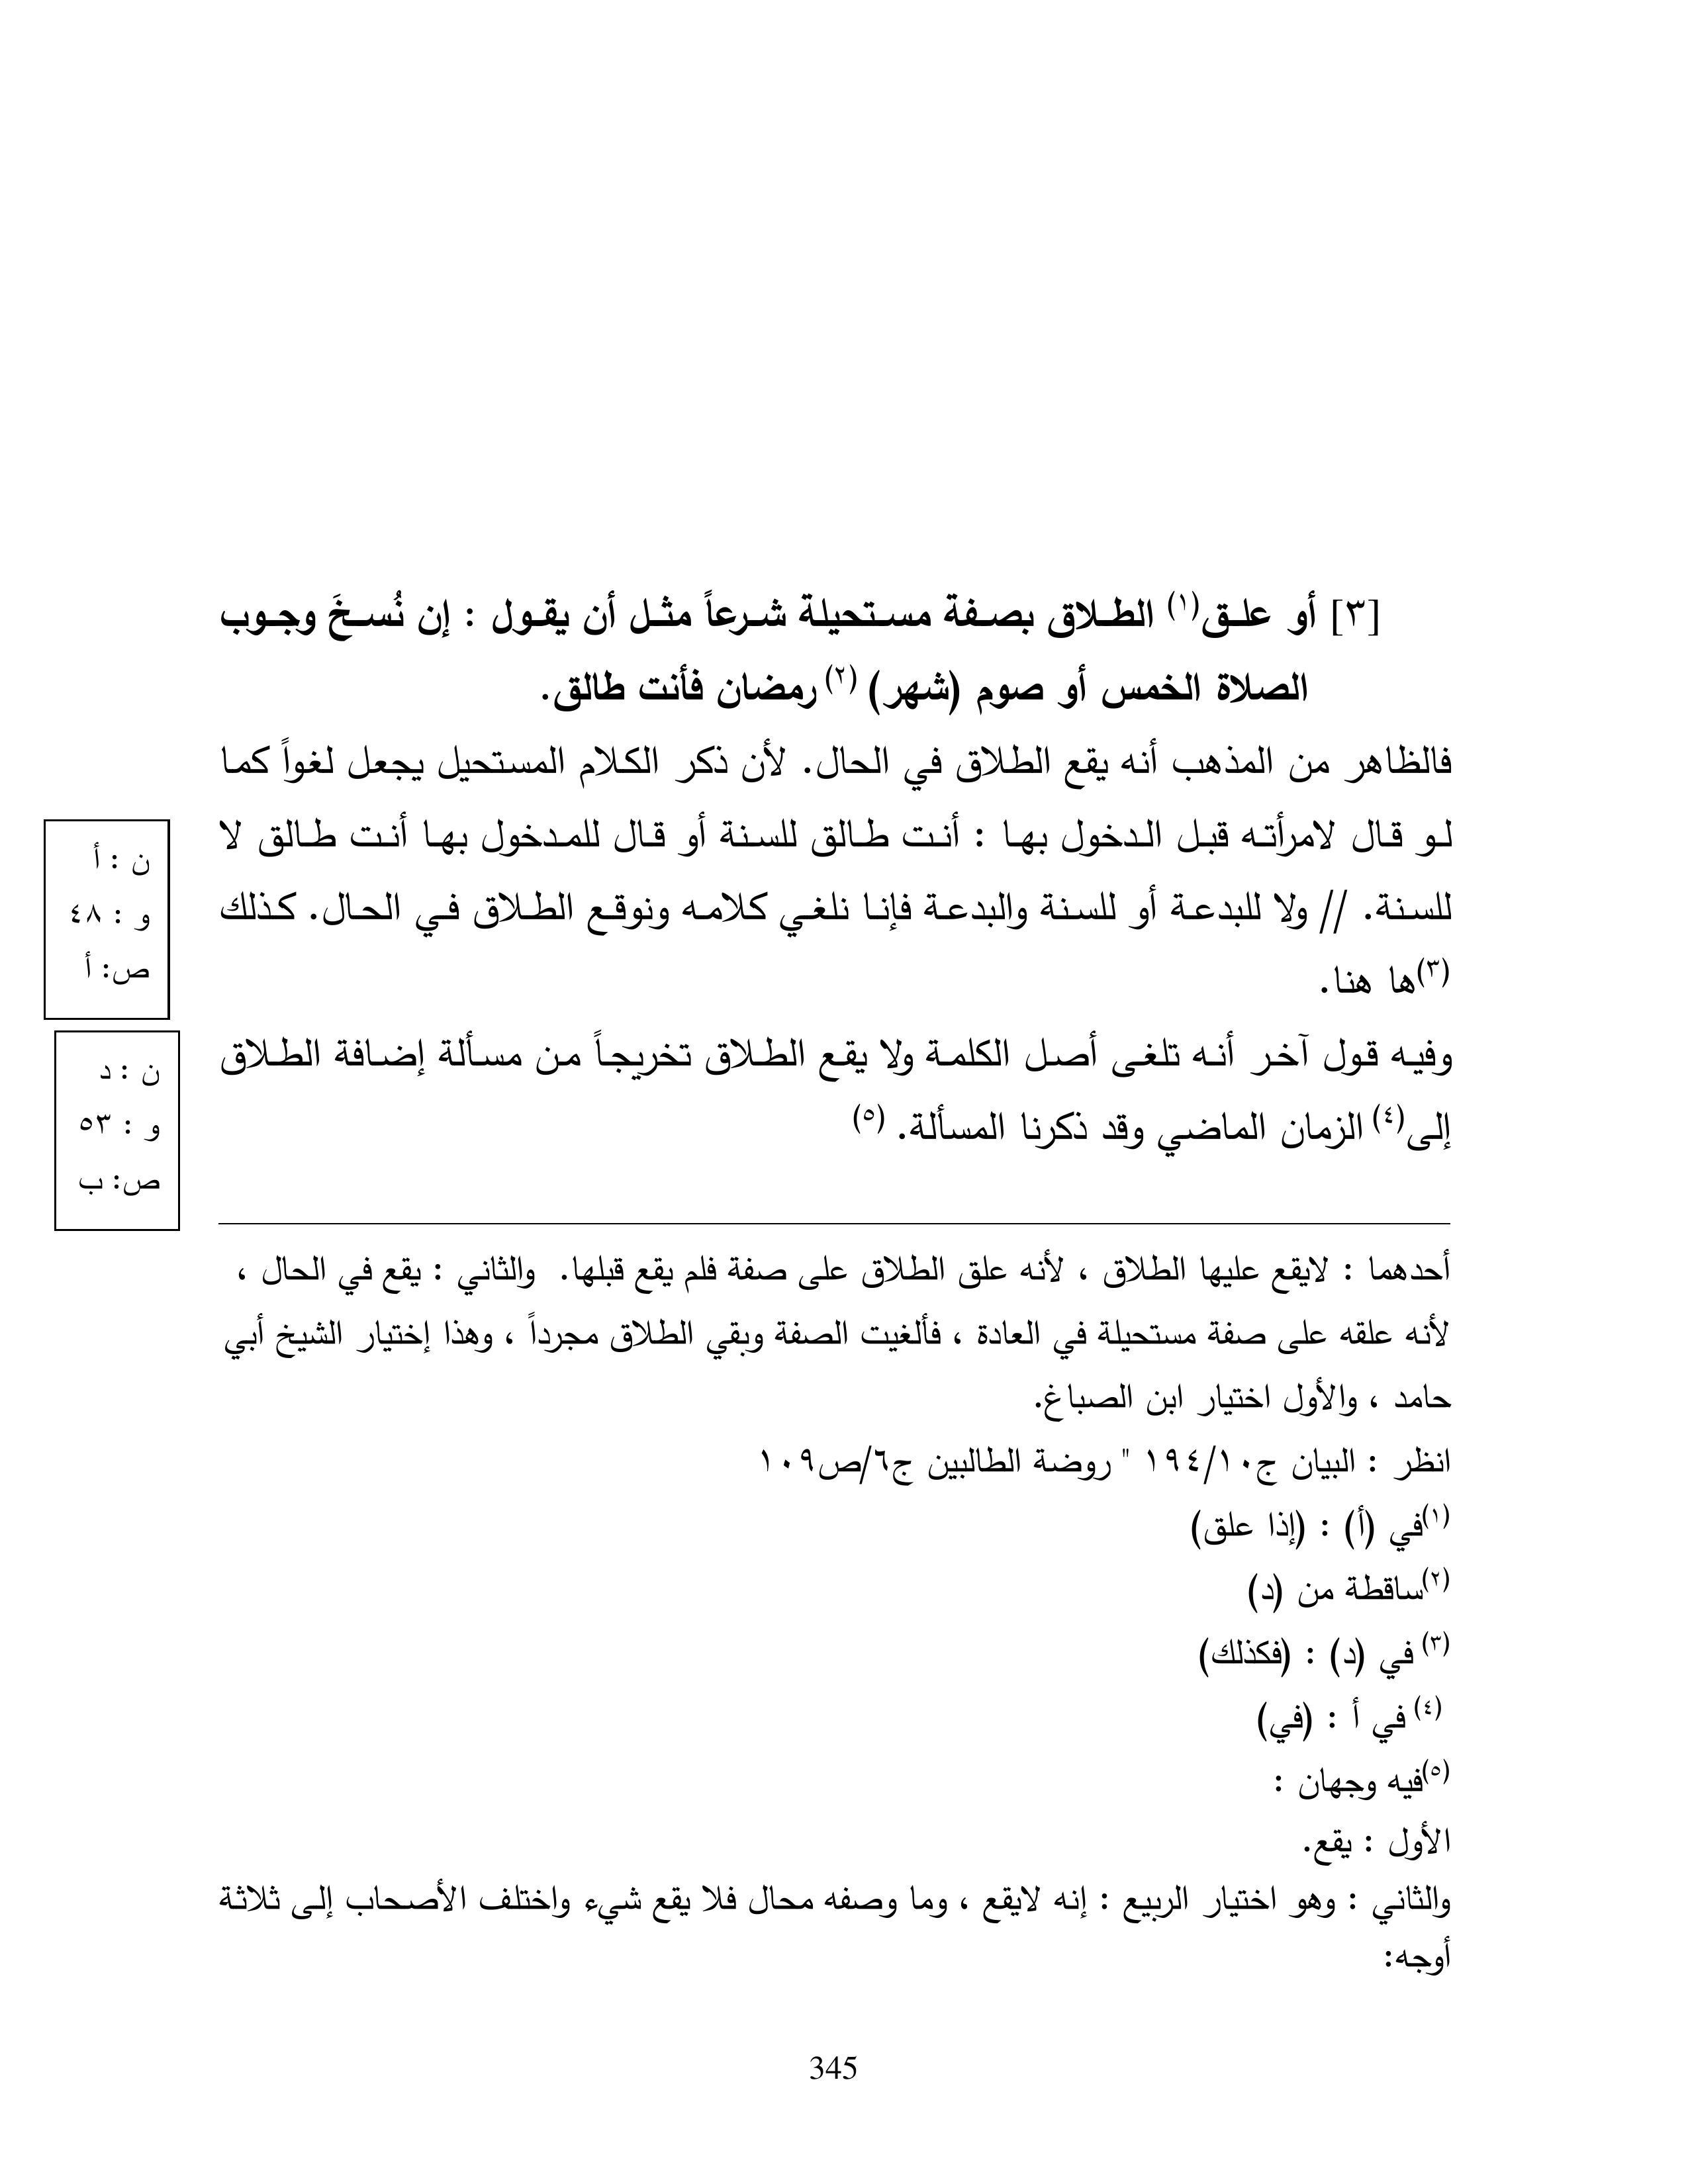 [٣] أو علـق(١) الطـلاق بصـفة مسـتحيلة شـرعاً مثـل أن يقـول : إن نُسـخَ وجـوب
الصلاة الخمس أو صوم (شهر) (٢) رمضان فأنت طالق.
فالظاهر من المذهب أنه يقع الطلاق في الحال. لأن ذكر الكلام المستحيل يجعل لغواً كما
لو قال لامرأته قبل الدخول بها : أنت طالق للسنة أو قال للمدخول بها أنت طالق لا
للسنة. // ولا للبدعة أو للسنة والبدعة فإنا نلغي كلامه ونوقع الطلاق في الحال. كذلك
(٣)ها هنا.
وفيه قول آخر أنه تلغى أصل الكلمة ولا يقع الطلاق تخريجاً من مسألة إضافة الطلاق
إلى(٤) الزمان الماضي وقد ذكرنا المسألة. (٥)
ن : أ
و : ٤٨
ص: أ
ن : د
و : ٥٣
ص: ب
أحدهما : لايقع عليها الطلاق ، لأنه علق الطلاق على صفة فلم يقع قبلها. والثاني : يقع في الحال ،
لأنه علقه على صفة مستحيلة في العادة ، فألغيت الصفة وبقي الطلاق مجرداً ، وهذا إختيار الشيخ أبي
حامد ، والأول اختيار ابن الصباغ.
انظر : البيان ج١٩٤/١٠ " روضة الطالبين ج٦/ص١٠٩
(١)في (أ) : (إذا علق)
(٢)ساقطة من (د)
(٣) في (د) : (فكذلك)
(٤) في أ : (في)
(٥)فيه وجهان :
الأول : يقع.
والثاني : وهو اختيار الربيع : إنه لايقع ، وما وصفه محال فلا يقع شيء واختلف الأصحاب إلى ثلاثة
أوجه:
345